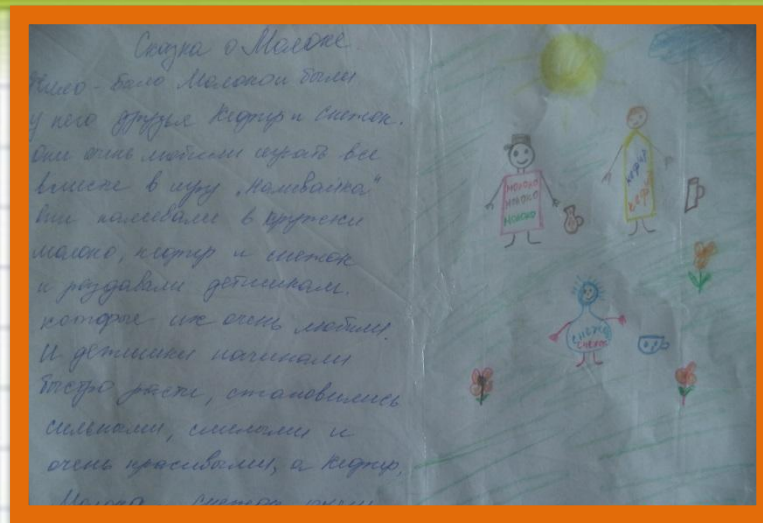 Сказка о Молоке
Жило-было Молоко и были
у него друзья Кефир и Снежок.
Они очень любили играть все
вместе в игру „Наливалка"
Они наливали в кружки
молоко, кефир и снежок
и раздавали детишкам,
которые их очень любили.
И детишки начинали
быстро расти, становились
сильными, смелыми и
очень красивыми, а Кефир,
Молоко снежок
молоко
молоко
молоко
кефир
кефир
снежок
снежок